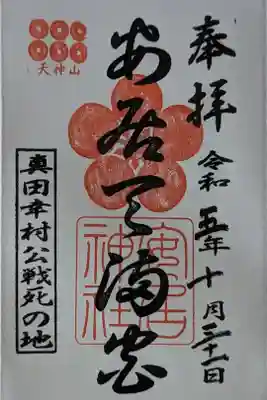 奉拝
令和五年十月三十一日
安居天満宮
安居神社
天神山
真田幸村公戦死の地